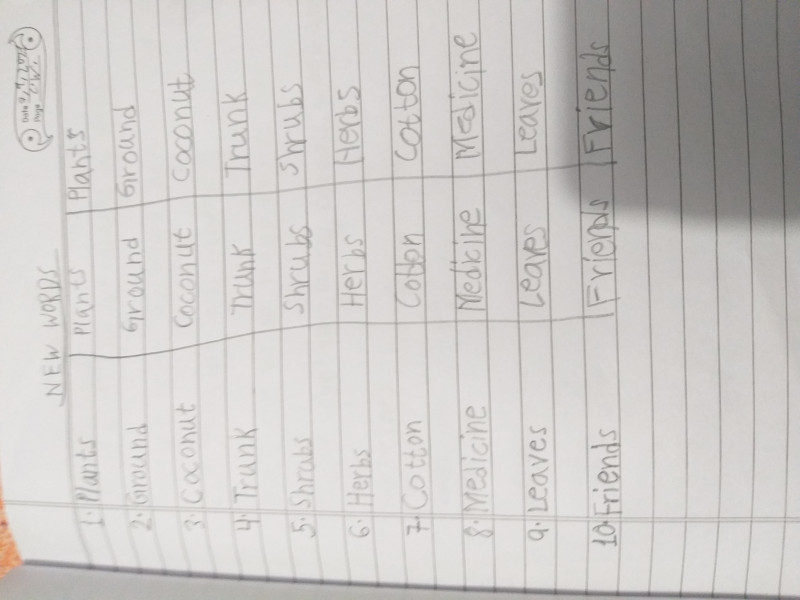 Date
Page
NEW WORDS
1. Plants Plants Plants
2. Ground Ground Ground
3. Coconut Coconut Coconut
4. Trunk Trunk Trunk
5. Shrubs Shrubs Shrubs
6. Herbs Herbs Herbs
7. Cotton Cotton Cotton
8. Medicine Medicine Medicine
9. Leaves Leaves Leaves
10. Friends Friends Friends